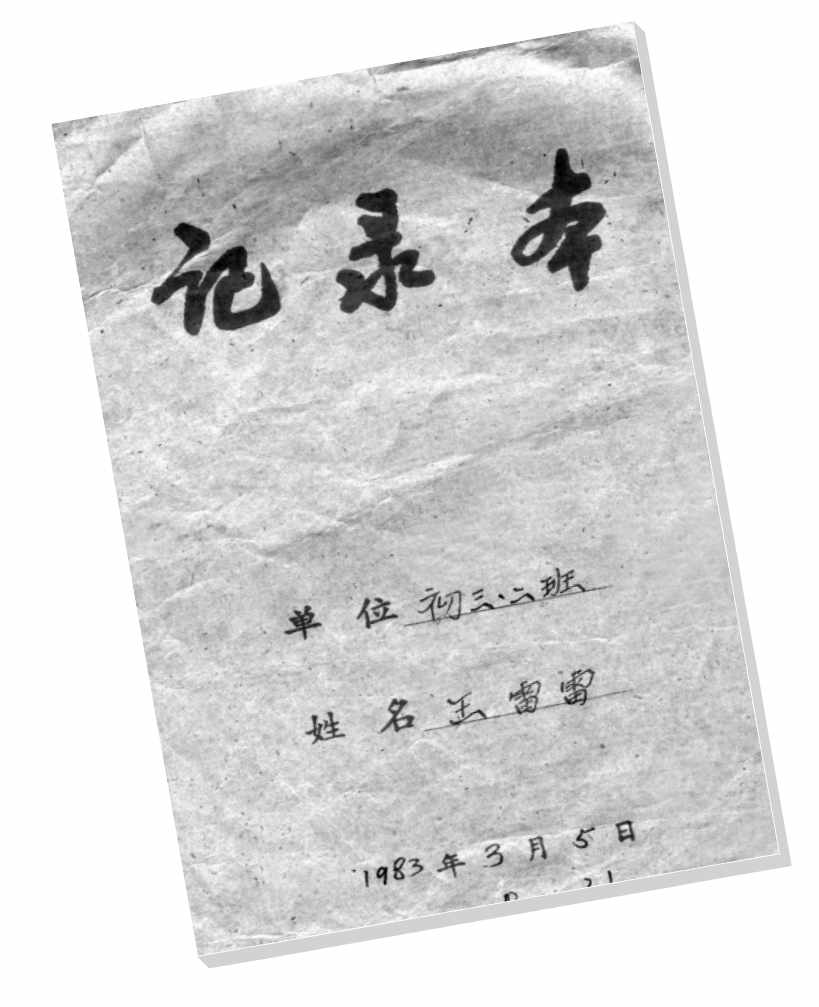 记录本
单位 初三·二班
姓名 王雷雷
1983年3月5日